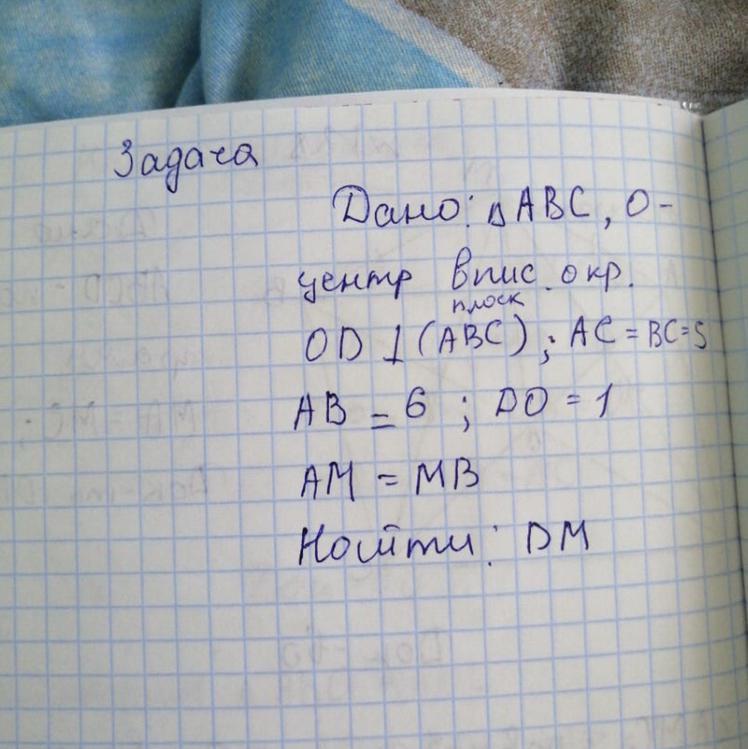 Задача
Дано: △ABC, O-
центр впис. окр.
плоск
OD ⊥ (ABC) ; AC = BC = 5
AB = 6 ; DO = 1
AM = MB
Найти: DM